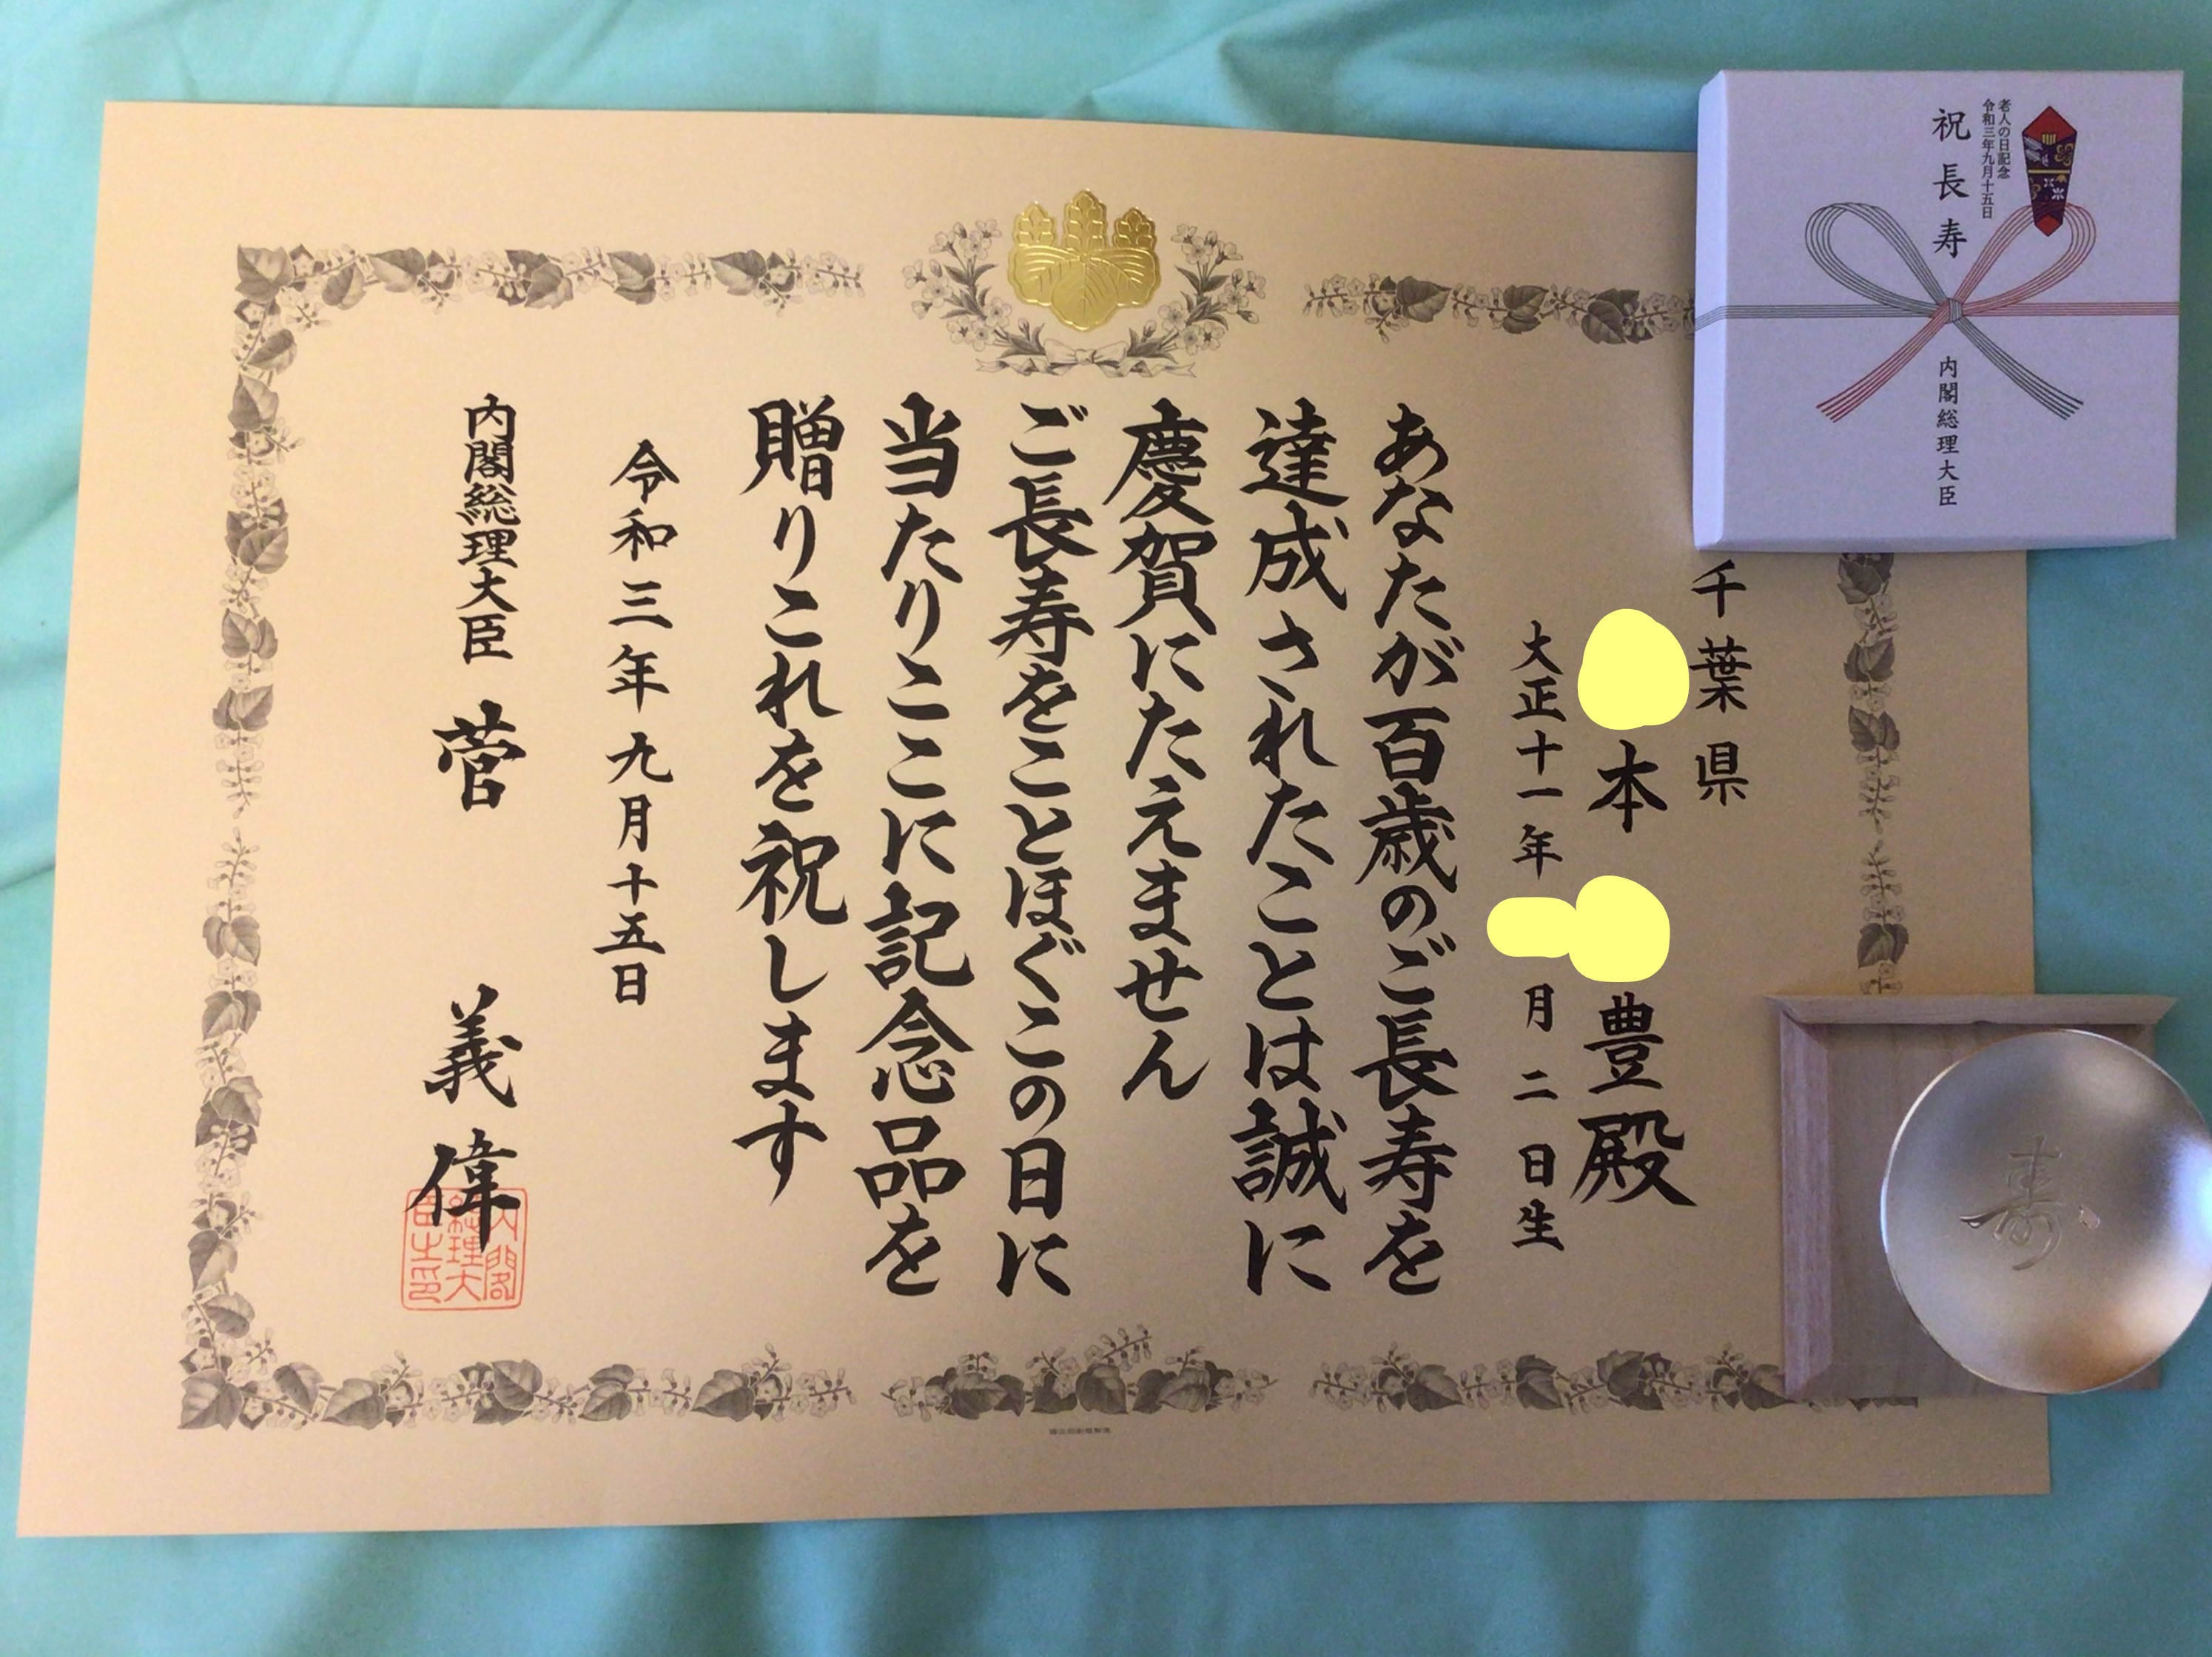 千葉県
本 豊殿
大正十一年 月二日生
あなたが百歳のご長寿を
達成されたことは誠に
慶賀にたえません
ご長寿をことほぐこの日に
当たりここに記念品を
贈りこれを祝します
令和三年九月十五日
内閣総理大臣 菅 義偉
内閣
総理大
臣之印
老人の日記念
令和三年九月十五日
祝長寿
内閣総理大臣
寿